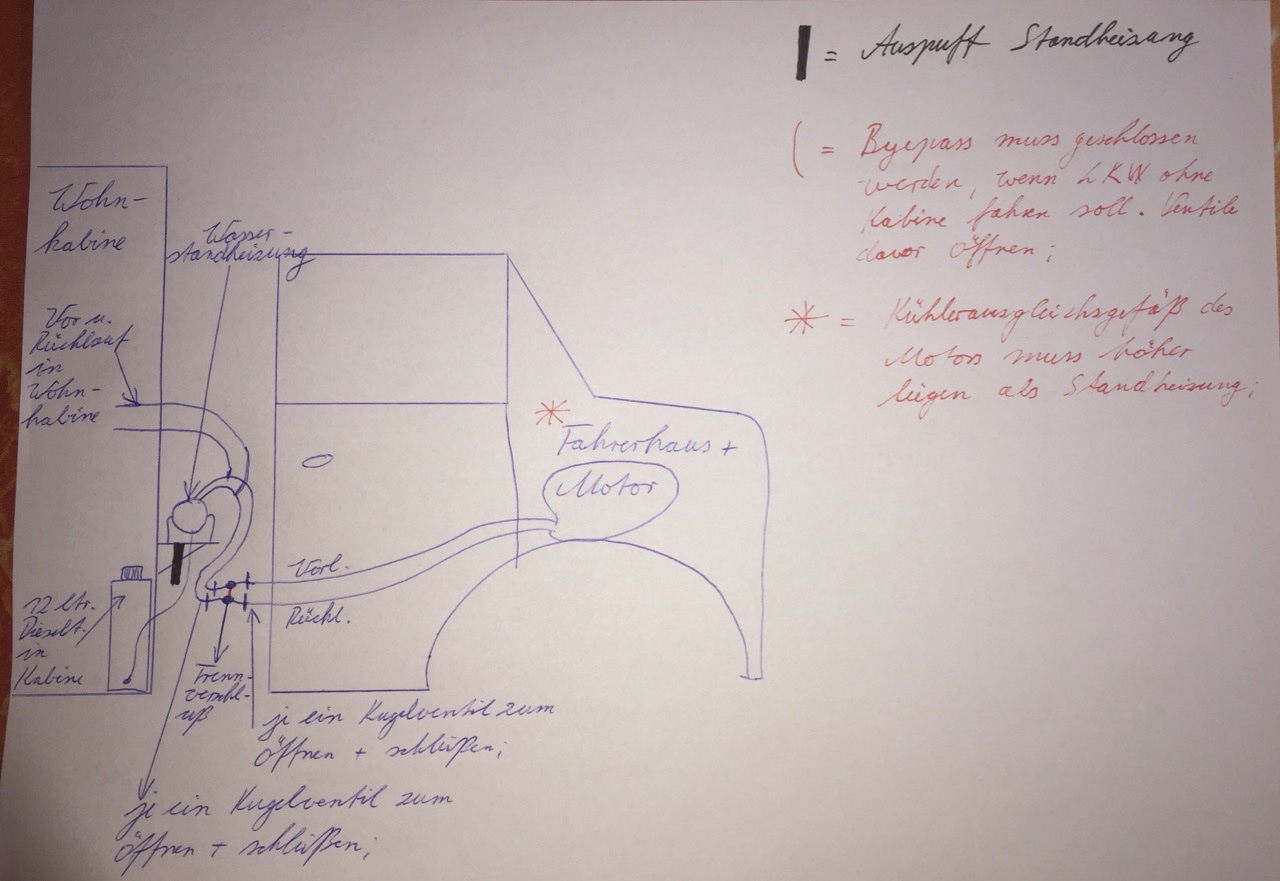 = Auspuff Standheizung
= Byepass muss geschlossen
werden, wenn LKW ohne
Kabine fahren soll. Ventile
davor öffnen;
= Kühlerausgleichsgefäß des
Motors muss höher
liegen als Standheizung;
Wohn-
kabine
Wasser-
standheizung
Vor u.
Rücklauf
in
Wohn-
kabine
Fahrerhaus +
Motor
Vorl.
Rückl.
12 ltr.
Dieselt.
in
Kabine
Trenn-
verschl-
uß
je ein Kugelventil zum
öffnen + schließen;
je ein Kugelventil zum
öffnen + schließen;